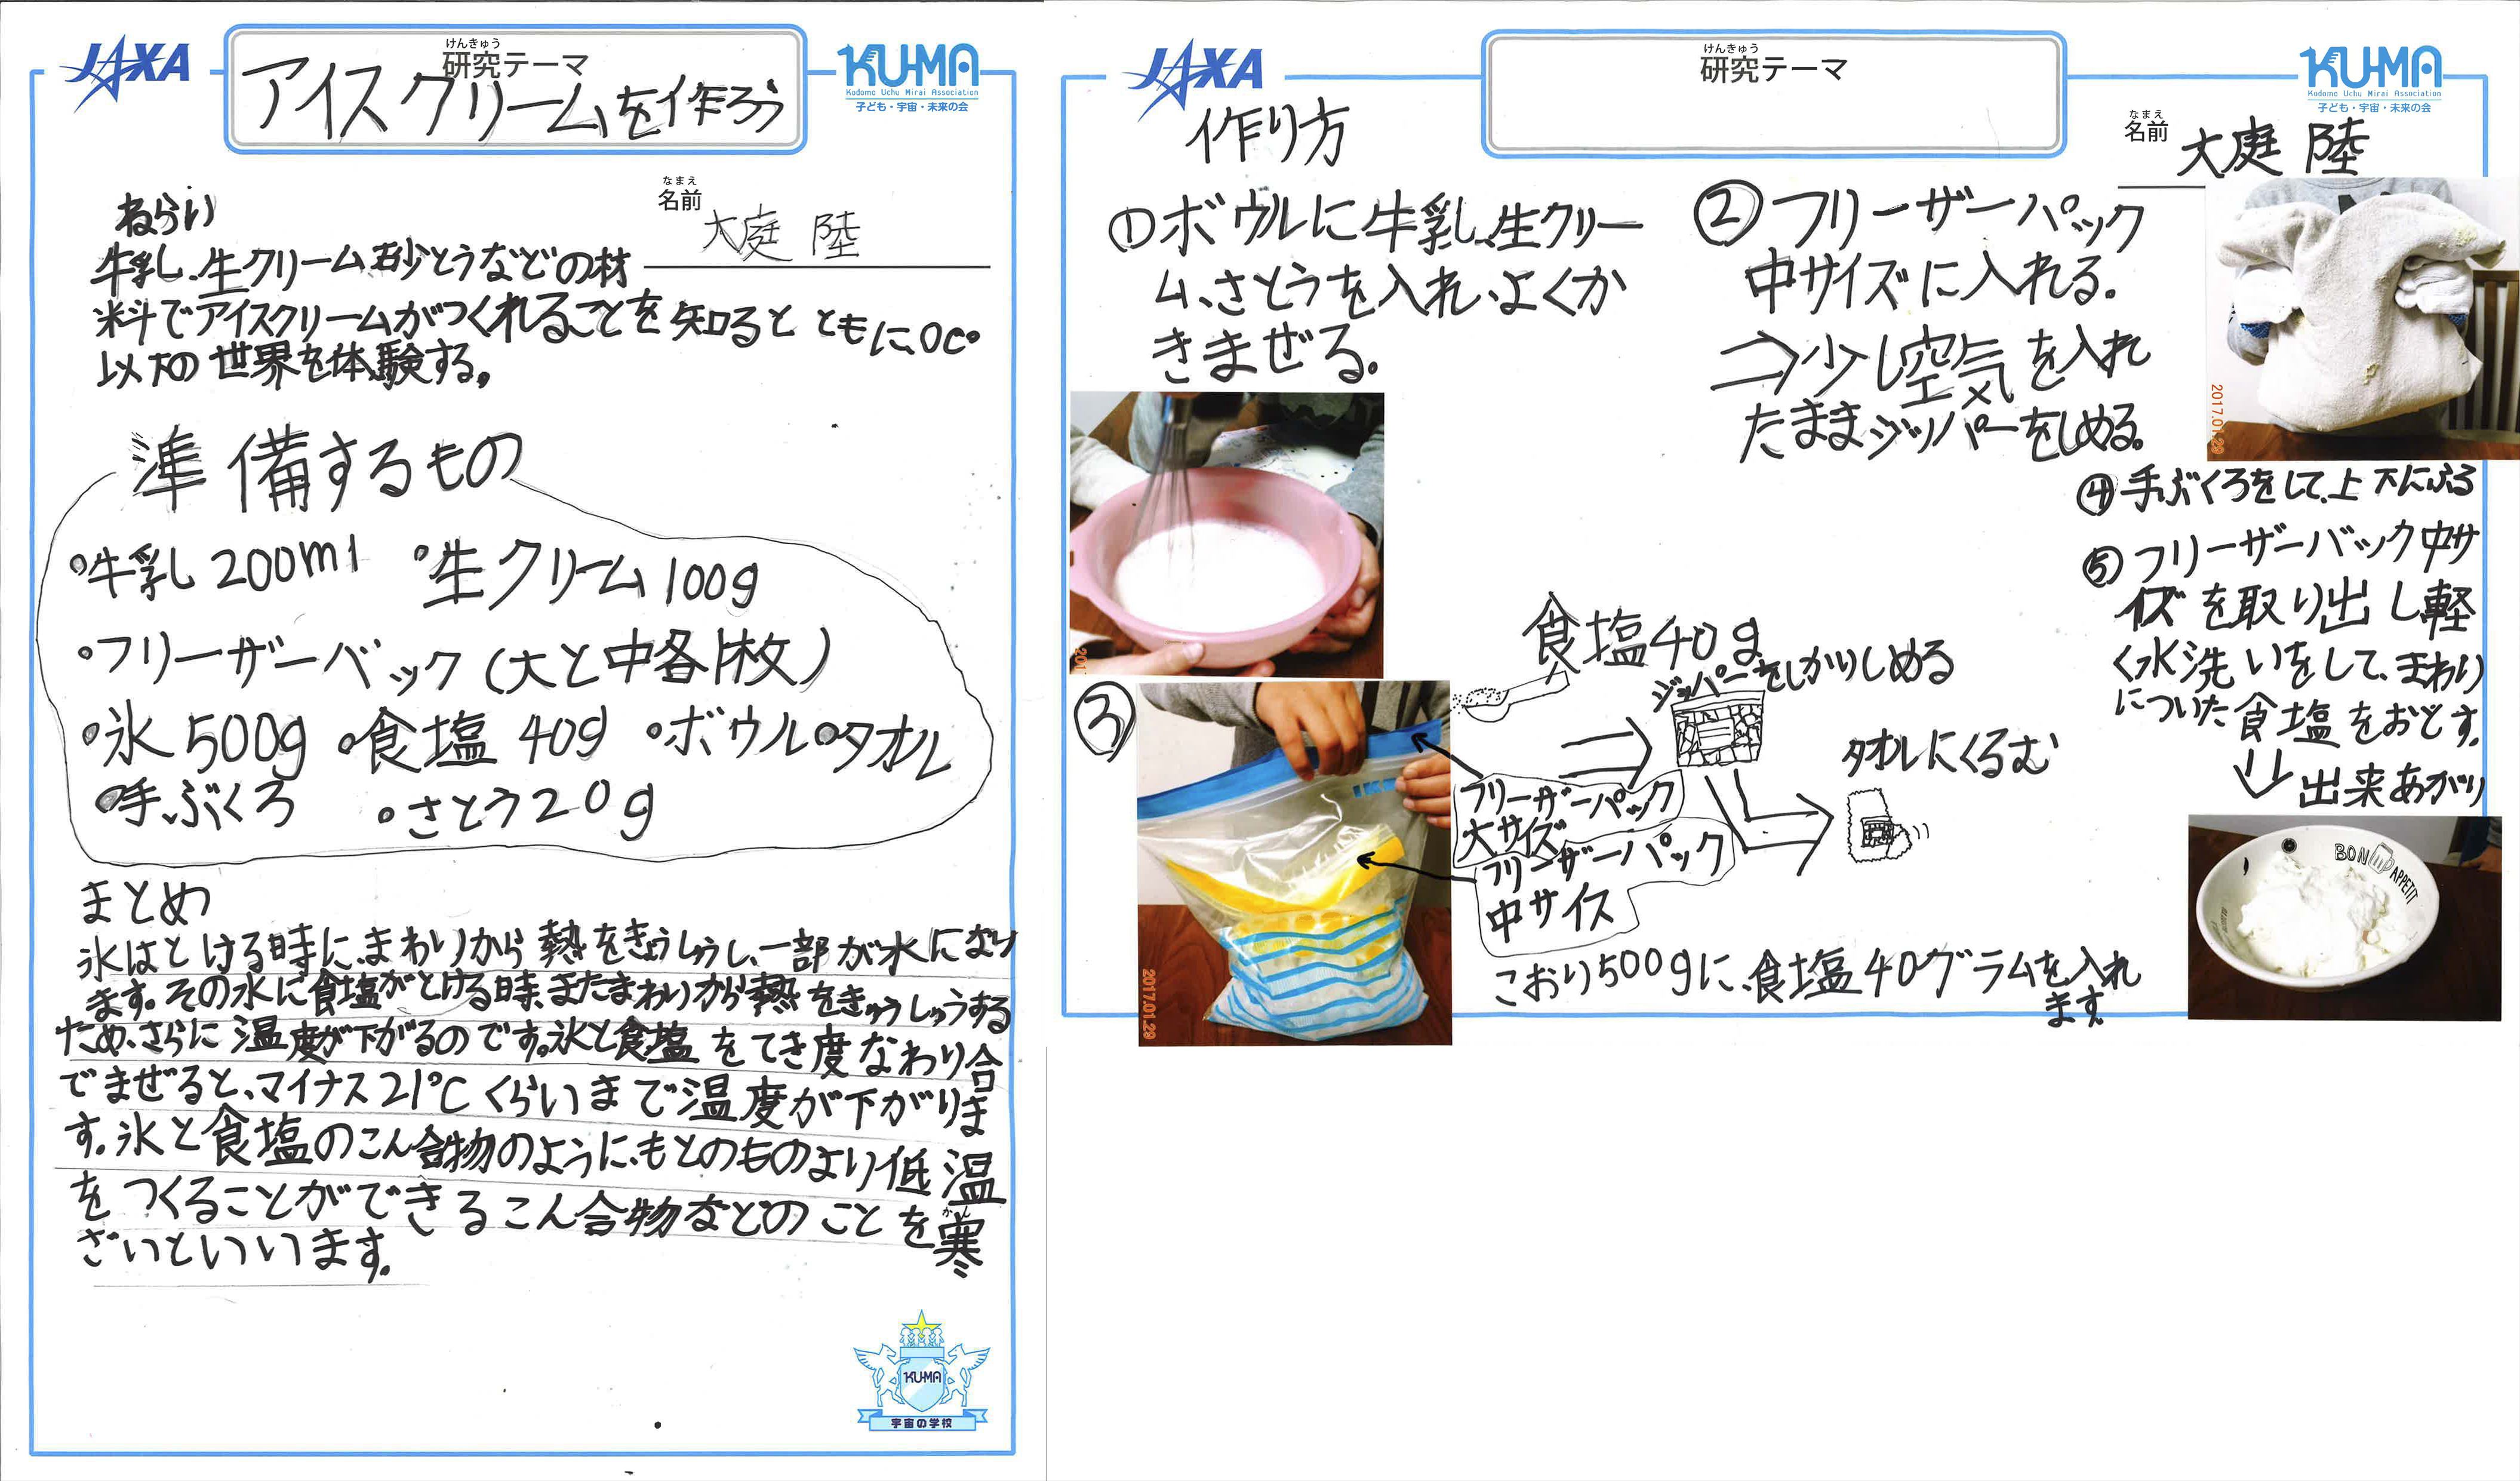 JAXA
けんきゅう
研究テーマ
アイスクリームを作ろう
KU-MA
Kodomo Uchu Mirai Association
子ども・宇宙・未来の会
なまえ
名前
大庭 陸
ねらい
牛乳、生クリーム、砂とうなどの材
料でアイスクリームがつくれることを知るとともに、0C°
以下の世界を体験する。
準備するもの
・牛乳200ml ・生クリーム100g
・フリーザーバック(大と中各1枚)
・氷500g ・食塩40g ・ボウル ・タオル
・手ぶくろ ・さとう20g
まとめ
氷はとける時に、まわりから熱をきゅうしゅうし、一部が水になり
ます。その水に食塩がとける時、またまわりから熱をきゅうしゅうする
ため、さらに温度が下がるのです。氷と食塩をてき度なわり合
でまぜると、マイナス21℃くらいまで温度が下がりま
す。氷と食塩のこん合物のように、もとのものより低温
をつくることができるこん合物などのことを寒
かん
ざいといいます。
KU-MA
宇宙の学校
JAXA
けんきゅう
研究テーマ
KU-MA
Kodomo Uchu Mirai Association
子ども・宇宙・未来の会
なまえ
名前
大庭 陸
作り方
①ボウルに牛乳、生クリー
ム、さとうを入れ、よくか
きまぜる。
②フリーザーパック
中サイズに入れる。
⇒少し空気を入れ
たままジッパーをしめる。
201
③
食塩40g
ジッパーをしかりしめる
フリーザーパック
大サイズ
フリーザーパック
中サイズ
タオルにくるむ
こおり500gに、食塩40グラムを入れ
ます。
2017.01.29
2017.01.29
④手ぶくろをして、上下にふる
⑤フリーザーバック中サ
イズを取り出し軽
く水洗いをして、まわり
についた食塩をおとす。
出来あがり
BON APPETIT